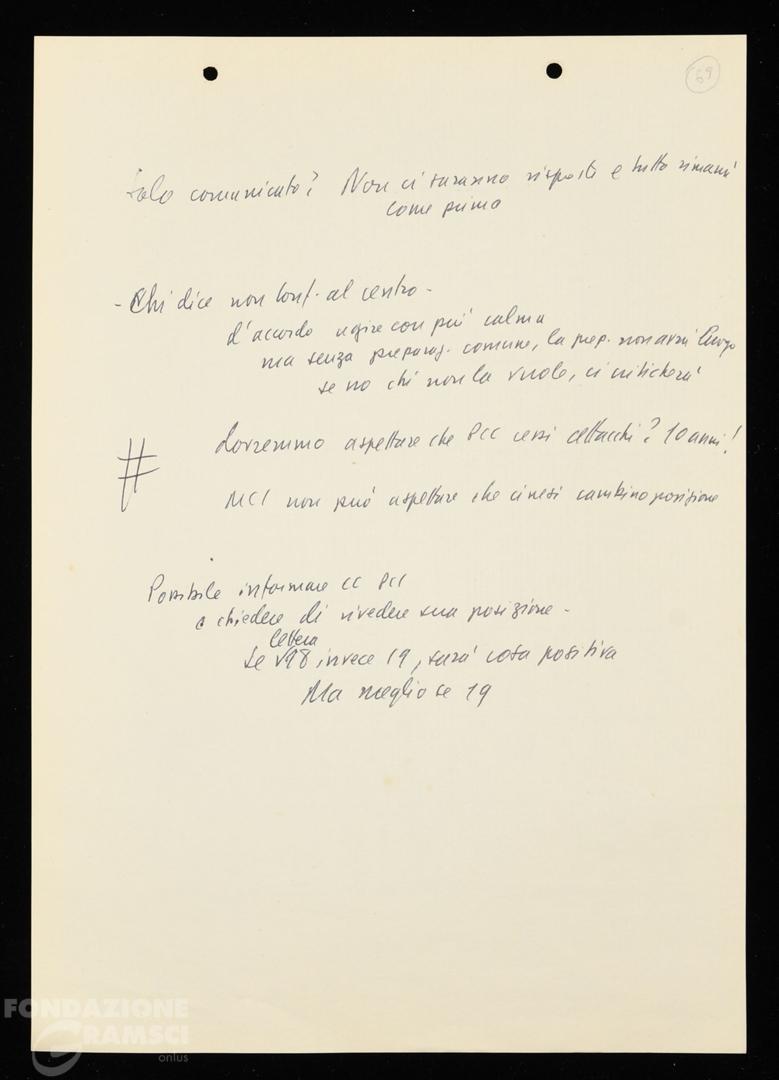 69
Solo comunicato? Non ci saranno risposte e tutto rimarrà
come prima
- Chi dice non conf. al centro -
d'accordo agire con più calma
ma senza preparaz. comune, la prep. non avrà luogo
se no chi non la vuole, ci criticherà
# dovremmo aspettare che PCC cessi attacchi? 10 anni!
MCI non può aspettare che cinesi cambino posizione
Possibile informare CC PCI
e chiedere di rivedere sua posizione -
lettera
Se 18 invece 19, sarà cosa positiva
Ma meglio se 19
FONDAZIONE
GRAMSCI
onlus